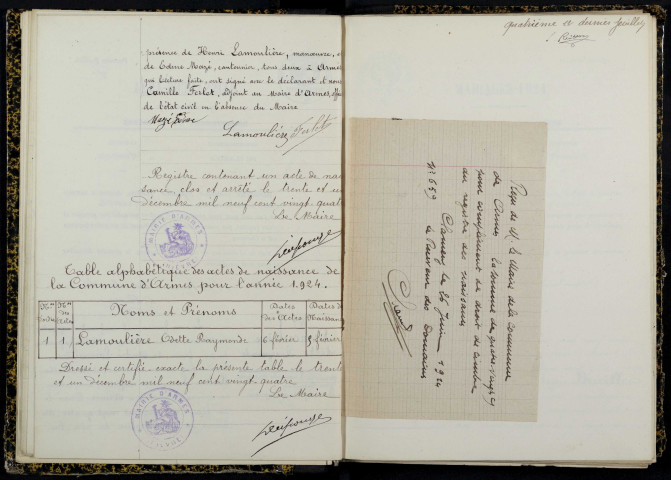 présence de Henri Lamoulière, manœuvre, et
de Edme Mazé, cantonnier, tous deux à Armes
qui lecture faite, ont signé avec le déclarant et nous
Camille Ferlot, adjoint au Maire d'Armes, offic
de l'état civil en l'absence du Maire
Mazé Edme
Lamoulière Ferlot
Registre contenant un acte de nais
sance clos et arrêté le trente et un
décembre mil neuf cent vingt-quatr
Le Maire
MAIRIE D'ARMES
NIÈVRE
Table alphabétique des actes de naissance de
la Commune d'Armes pour l'année 1924.
Nos d'ordre Nos des Actes Noms et Prénoms Dates des Actes Dates de Naissance
1 1 Lamoulière Odette Raymonde 6 février 5 février
Dressé et certifié exacte la présente table le trente
et un décembre mil neuf cent vingt-quatre
Le Maire
MAIRIE D'ARMES
NIÈVRE
quatrième et dernier feuillet
Reçu de M. le Maire de la Commune
de Armes la somme de quatre-vingt
pour complément de droit de timbre
au registre des naissances
Clamecy le 26 juin 1924
Le Receveur des Domaines
N° 659